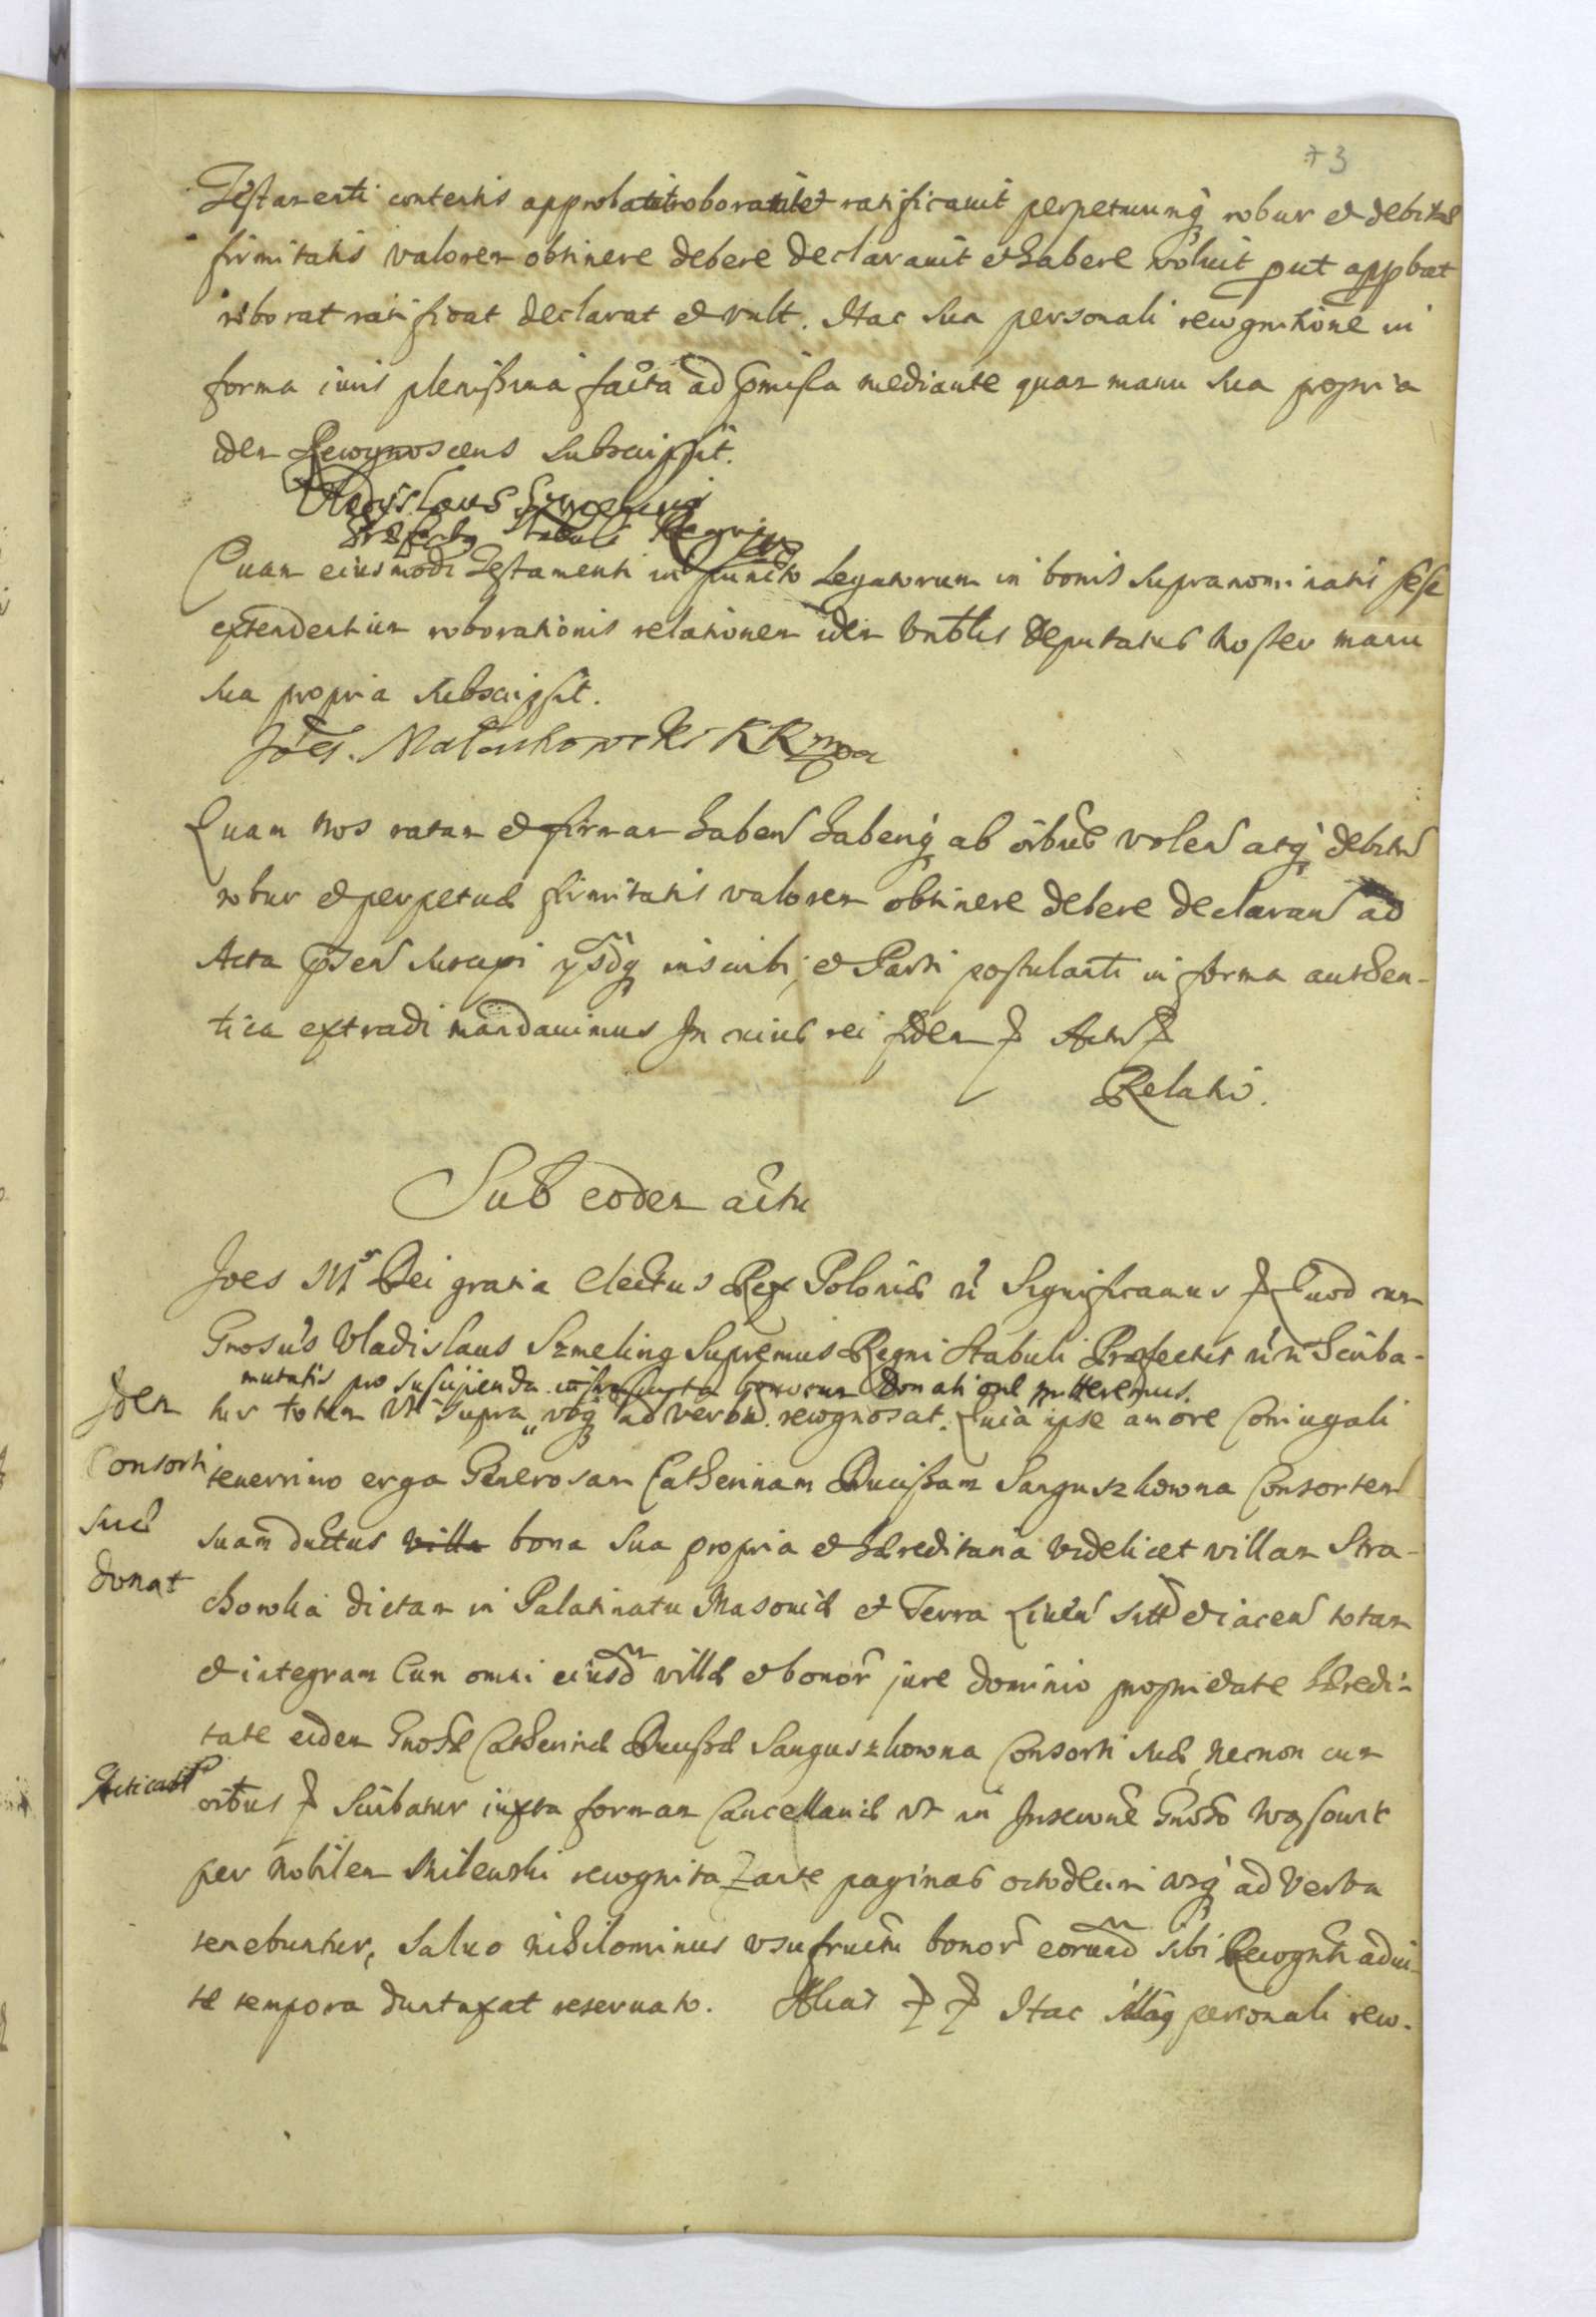 73
Testamenti contentis approbavit roboravit et ratificavit perpetuumq robur et debitæ
firmitatis valorem obtinere debere declaravit et habere voluit put appbat
roborat ratificat declarat et vult. Hac sua personali recognitione in
forma iuris plenissima facta ad pmissa mediante quam manu sua propria
idem Recognoscens subscripsit.
Vladislaus Szmeling
Præfectus Stabuli Regni
Quam eiusmodi Testamenti in puncto Legatorum in bonis supranominatis sese
extendentium roborationis relationem idem Vnblis Deputatus noster manu
sua propria subscripsit.
Joes. Małachowski KK mpa
Quam nos ratam et firmam haben haberiq ab oibus volen atq debitu
robur et perpetuæ firmitatis valorem obtinere debere declaran ad
Acta psen suscipi ysdq inscribi, et Parti postulanti in forma authen-
tica extradi mandavimus In cuius rei fidem Actu
Relatio.
Sub eodem actu
Joes III Dei gratia electus Rex Poloniæ Significamus Quod cum
Gnosus Vladislaus Szmeling Supremus Regni Stabuli Præfectus Scriba-
mutatis pro suscipienda bonorum Donatione mitteremus.
Idem tur totum vt supra vsq ad verbu. recognoscat. Quia ipse amore Coniugali
Consorti tenerrimo erga Generosam Catherinam Ducissam Sanguszkowna Consortem
suæ suam ductus villa bona sua propria et hæreditaria videlicet villam Stra-
donat chowka dictam in Palatinatu Masoviæ et Terra Liven sitt et iacen totam
et integram Cum omni eiusd villæ et bonor jure dominio proprietate hæredi-
tate eidem Gnosæ Catherinæ Ducissæ Sanguszkowna Consorti suæ, necnon cum
oibus Scribatur iuxta formam Cancellariæ vt in Inscrone Gnoso
per Nobilem Milewski recognita ante paginas octodecim vsq ad verba
tenebuntur, Salvo nihilominus vsufructu bonor eorund sibi Recognti advi-
tæ tempora duntaxat reservato. Alias Hac personali reco-